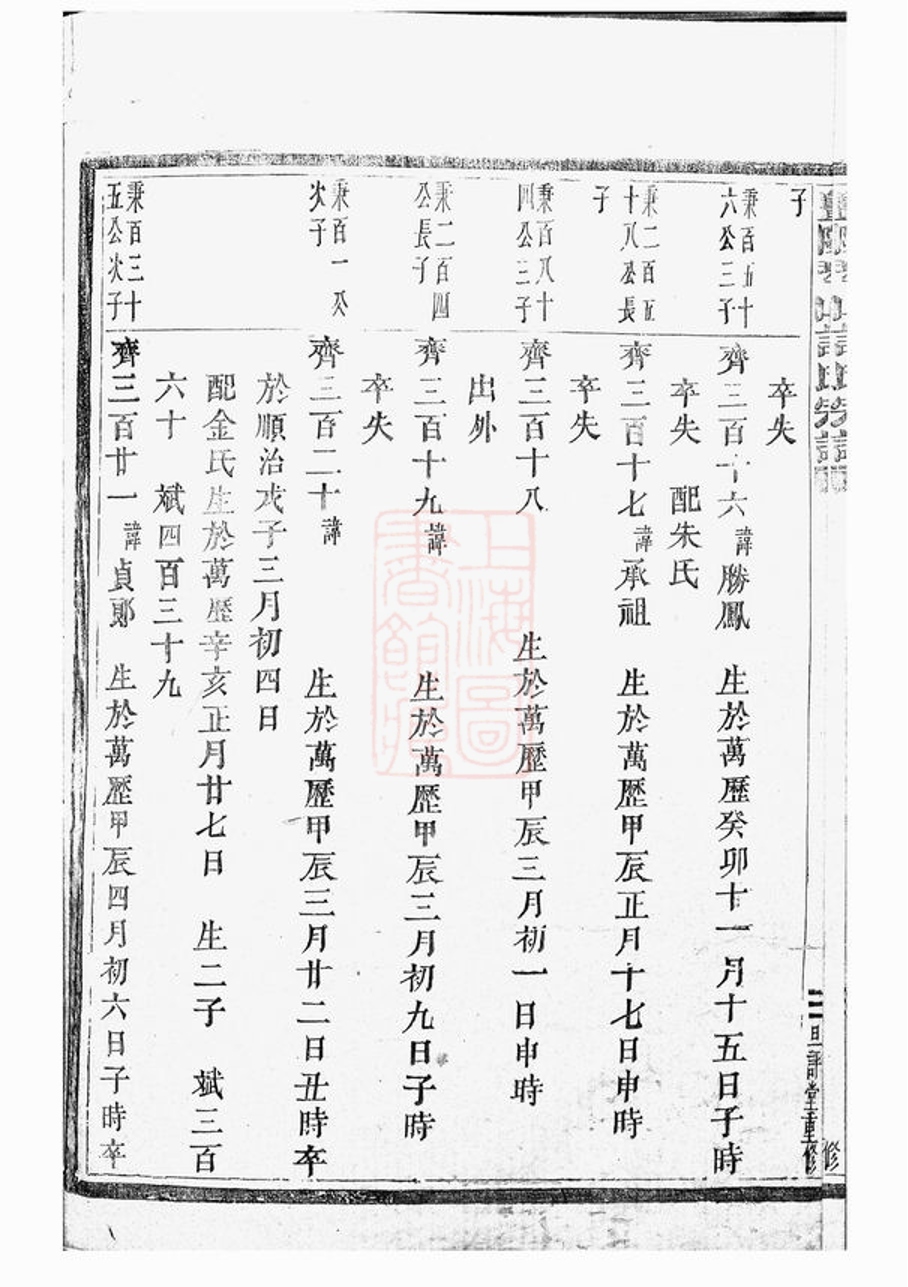 子
卒失
秉百五十
六公三子
齊三百十六諱勝鳳 生於萬歷癸卯十一月十五日子時
卒失 配朱氏
秉二百五
十八公長
子
齊三百十七諱承祖 生於萬歷甲辰正月十七日申時
卒失
秉百八十
四公三子
齊三百十八 生於萬歷甲辰三月初一日申時
出外
秉二百四
公長子
齊三百十九諱 生於萬歷甲辰三月初九日子時
卒失
秉百一公
次子
齊三百二十諱 生於萬歷甲辰三月廿二日丑時卒
於順治戊子三月初四日
配金氏生於萬歷辛亥正月廿七日 生二子 斌三百
六十 斌四百三十九
秉百三十
五公次子
齊三百廿一諱貞郎 生於萬歷甲辰四月初六日子時卒
堂重修
上海圖
書館藏